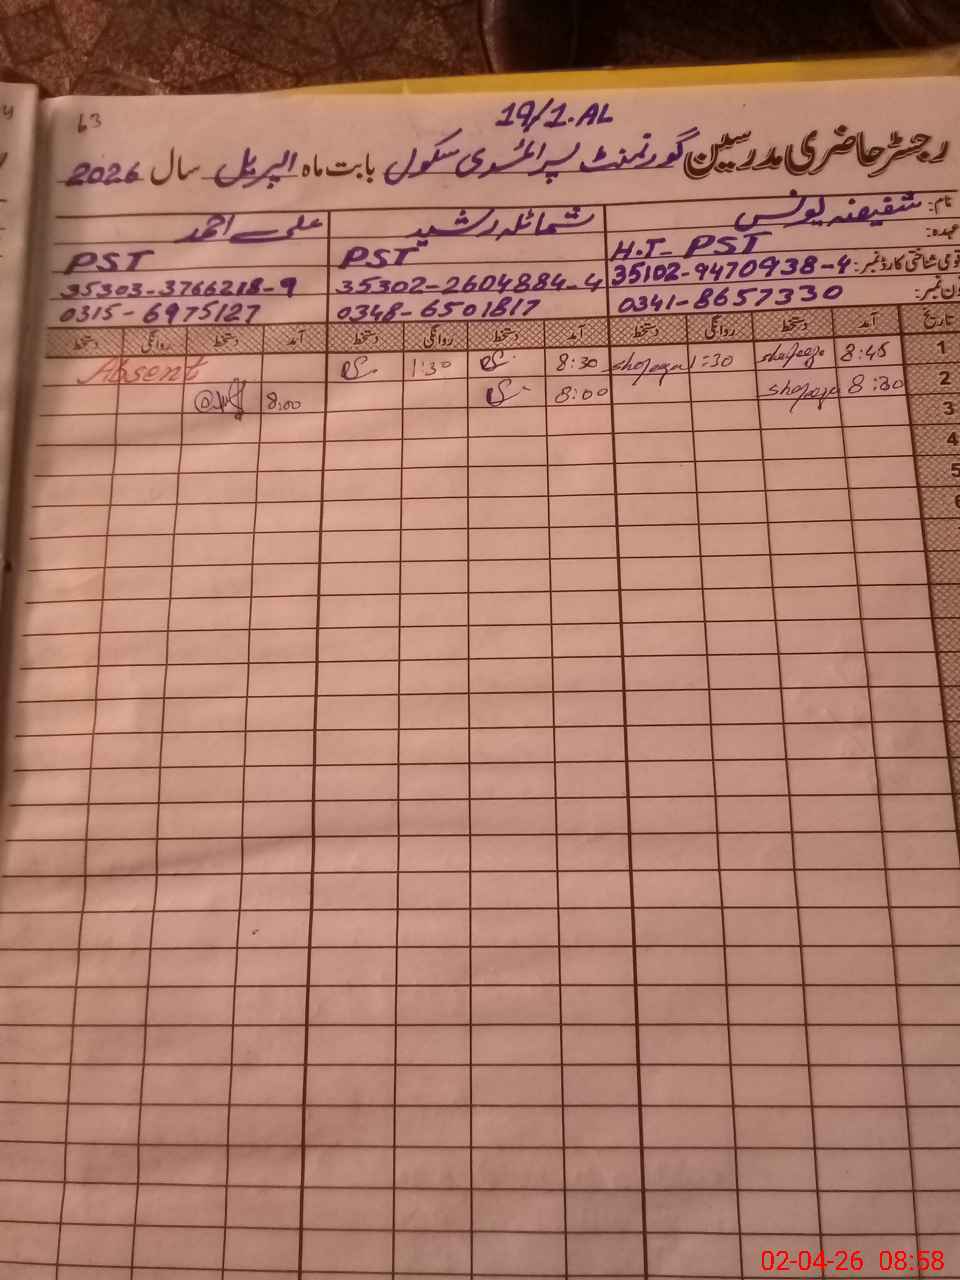 63
19/1.AL
رجسٹر حاضری مدرسین گورنمنٹ پرائمری سکول بابت ماہ اپریل سال 2026
نام: شفیعنہ یونس شمائلہ رشید علی احمد
عہدہ: H.T- PST PST PST
قومی شناختی کارڈ نمبر: 35102-9470938-4 35302-2604884-4 35303-3766218-9
فون نمبر: 0341-8657330 0348-6501817 0315-6975127
تاریخ آمد دستخط روانگی دستخط آمد دستخط روانگی دستخط آمد دستخط روانگی دستخط
1 8:45 1:30 8:30 1:30 Absent
2 8:30 8:00 8:00
3
4
5
6
02-04-26 08:58